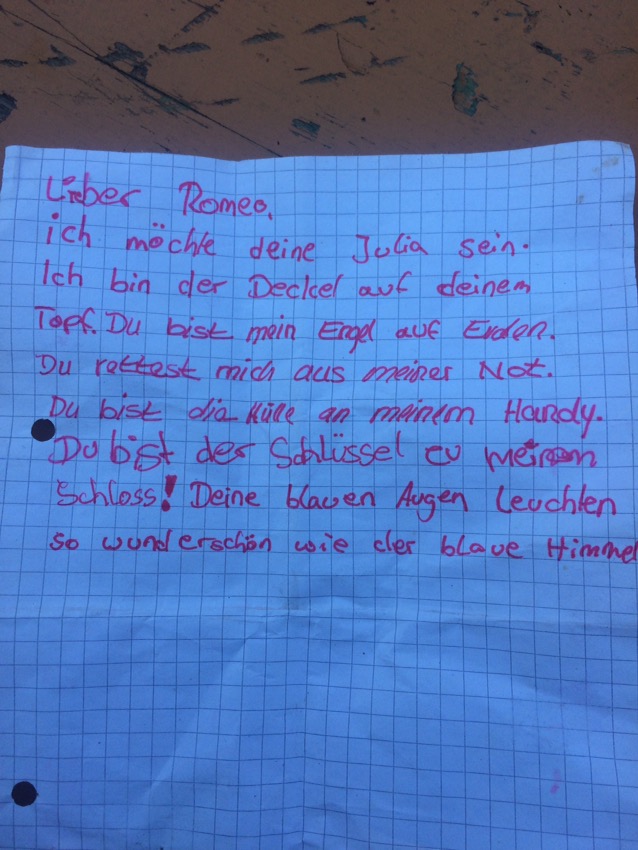 Lieber Romeo,
ich möchte deine Julia sein.
Ich bin der Deckel auf deinem
Topf. Du bist mein Engel auf Erden.
Du rettest mich aus meiner Not.
Du bist die Hülle an meinem Handy.
Du bist der Schlüssel zu meinem
Schloss! Deine blauen Augen leuchten
so wunderschön wie der blaue Himmel